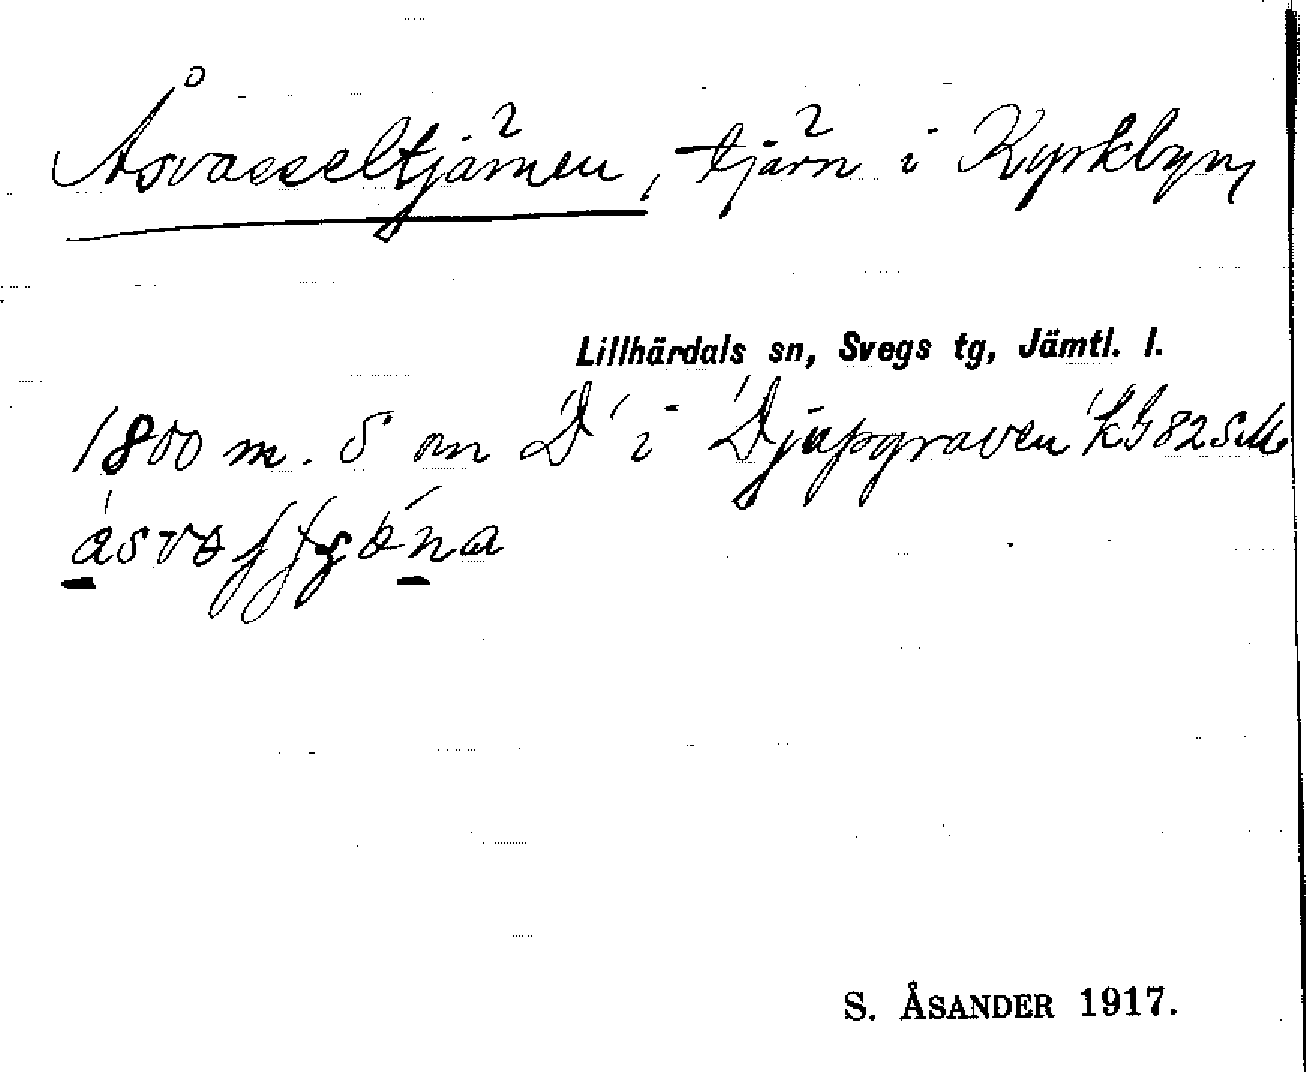 Åsvasseltjärnen, tjärn i Kyrkbyn,
Lillhärdals sn, Svegs tg, Jämtl. l.
1800 m. S om D i Djupgraven
S. ÅSANDER 1917.